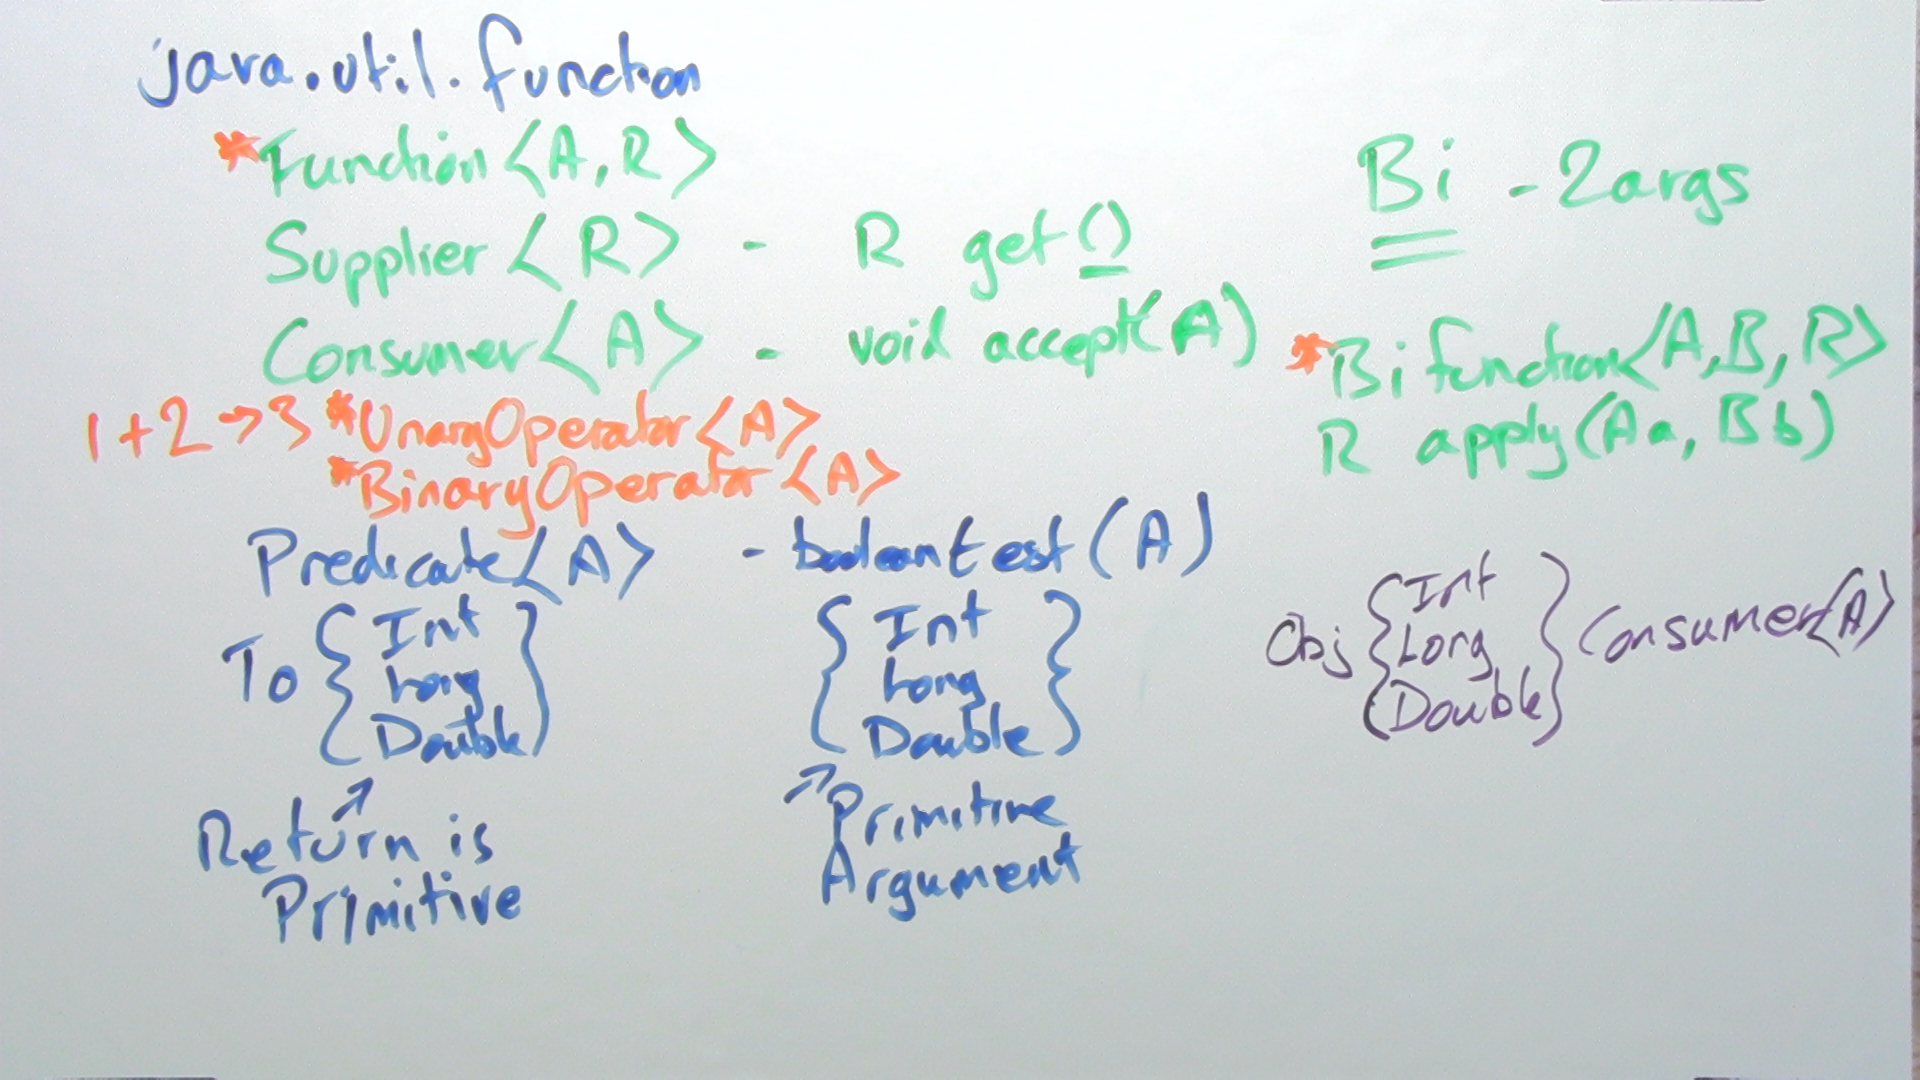 java.util.function
*Function<A,R>
Supplier<R> - R get()
Consumer<A> - void accept(A)
1+2→3 *UnaryOperator<A>
*BinaryOperator<A>
Predicate<A> - boolean test(A)
To { Int
Long
Double }
↗
Return is
Primitive
{ Int
Long
Double }
↗
Primitive
Argument
Bi - 2args
*Bifunction<A,B,R>
R apply(A a, B b)
Obj { Int
Long
Double } Consumer<A>